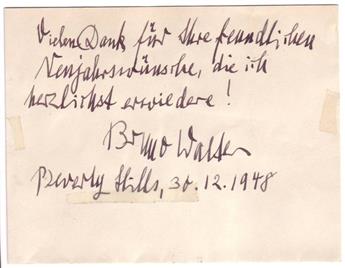 Vielen Dank für Ihre freundlichen
Neujahrswünsche, die ich
herzlichst erwiedere!
Bruno Walter
Beverly Hills, 30.12.1948